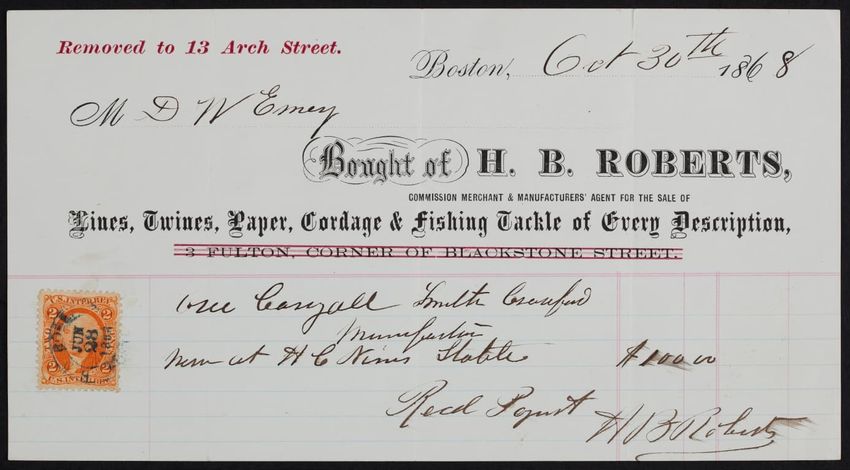 Removed to 13 Arch Street.
Boston, Oct 30th 1868
M D W Emey
Bought of H. B. ROBERTS,
COMMISSION MERCHANT & MANUFACTURERS' AGENT FOR THE SALE OF
Lines, Twines, Paper, Cordage & Fishing Tackle of Every Description,
3 FULTON, CORNER OF BLACKSTONE STREET.
one Smith
now at H C Stable $100 00
Recd
H B Roberts
U.S. INTER. REV.
2 2
JUN
28